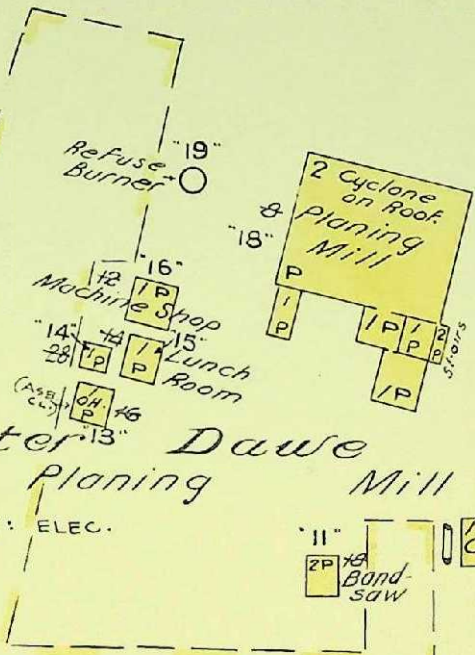 Refuse
Burner
"19"
2 Cyclone
on Roof.
Planing
Mill
"18"
P
1
P
1P
1
P
2
P
Stairs
1P
"16"
1P
Machine Shop
"14"
1P
"15"
1
P
Lunch
Room
O.H.
P
"13"
ter Dawe
Planing Mill
: ELEC.
"11"
2P
Band-
saw